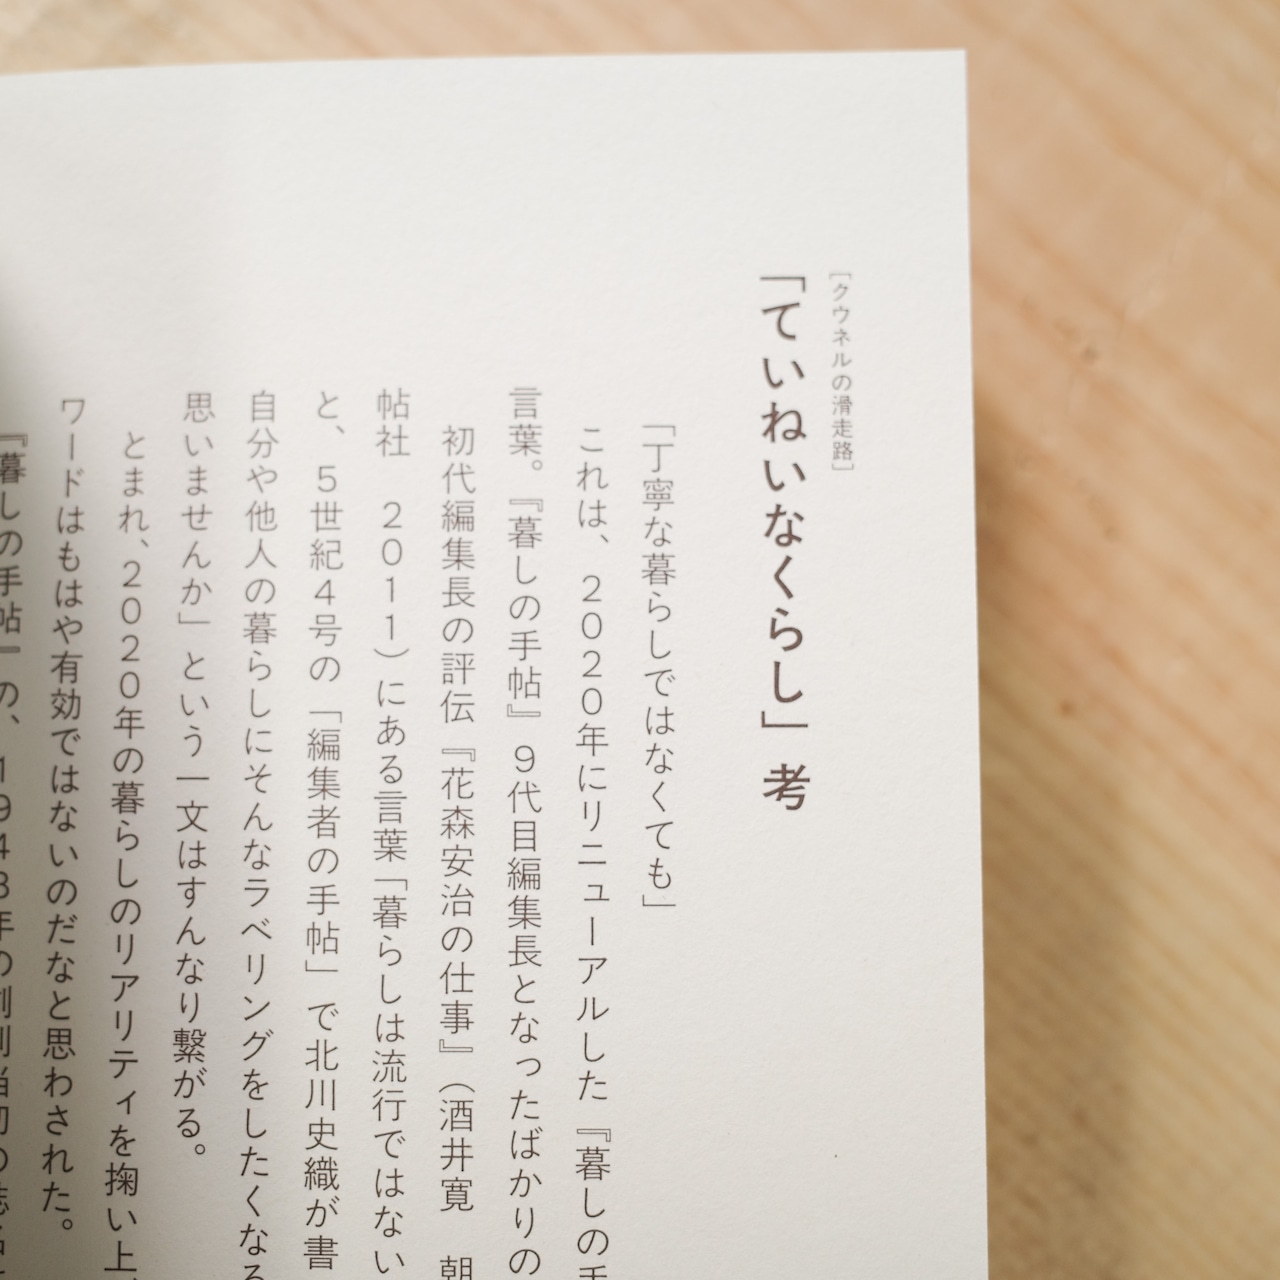 ［クウネルの滑走路］
「ていねいなくらし」考
「丁寧な暮らしではなくても」
これは、2020年にリニューアルした『暮しの手
言葉。『暮しの手帖』9代目編集長となったばかりの
初代編集長の評伝『花森安治の仕事』（酒井寛　朝
帖社　2011）にある言葉「暮らしは流行ではない
と、5世紀4号の「編集者の手帖」で北川史織が書
自分や他人の暮らしにそんなラベリングをしたくなる
思いませんか」という一文はすんなり繋がる。
とまれ、2020年の暮らしのリアリティを掬い上
ワードはもはや有効ではないのだなと思わされた。
『暮しの手帖』の、1948年の創刊当初の誌名